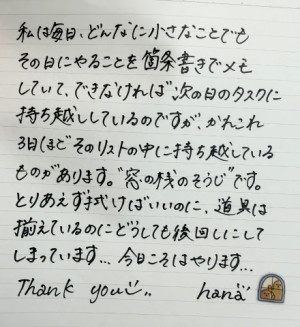 私は毎日、どんなに小さなことでも
その日にやることを箇条書きでメモ
していて、できなければ次の日のタスクに
持ち越ししているのですが、かれこれ
3日ほどそのリストの中に持ち越している
ものがあります。“窓の桟のそうじ”です。
とりあえず拭けばいいのに、道具は
揃えているのにどうしても後回しにして
しまっています... 今日こそはやります...
Thank you
hana